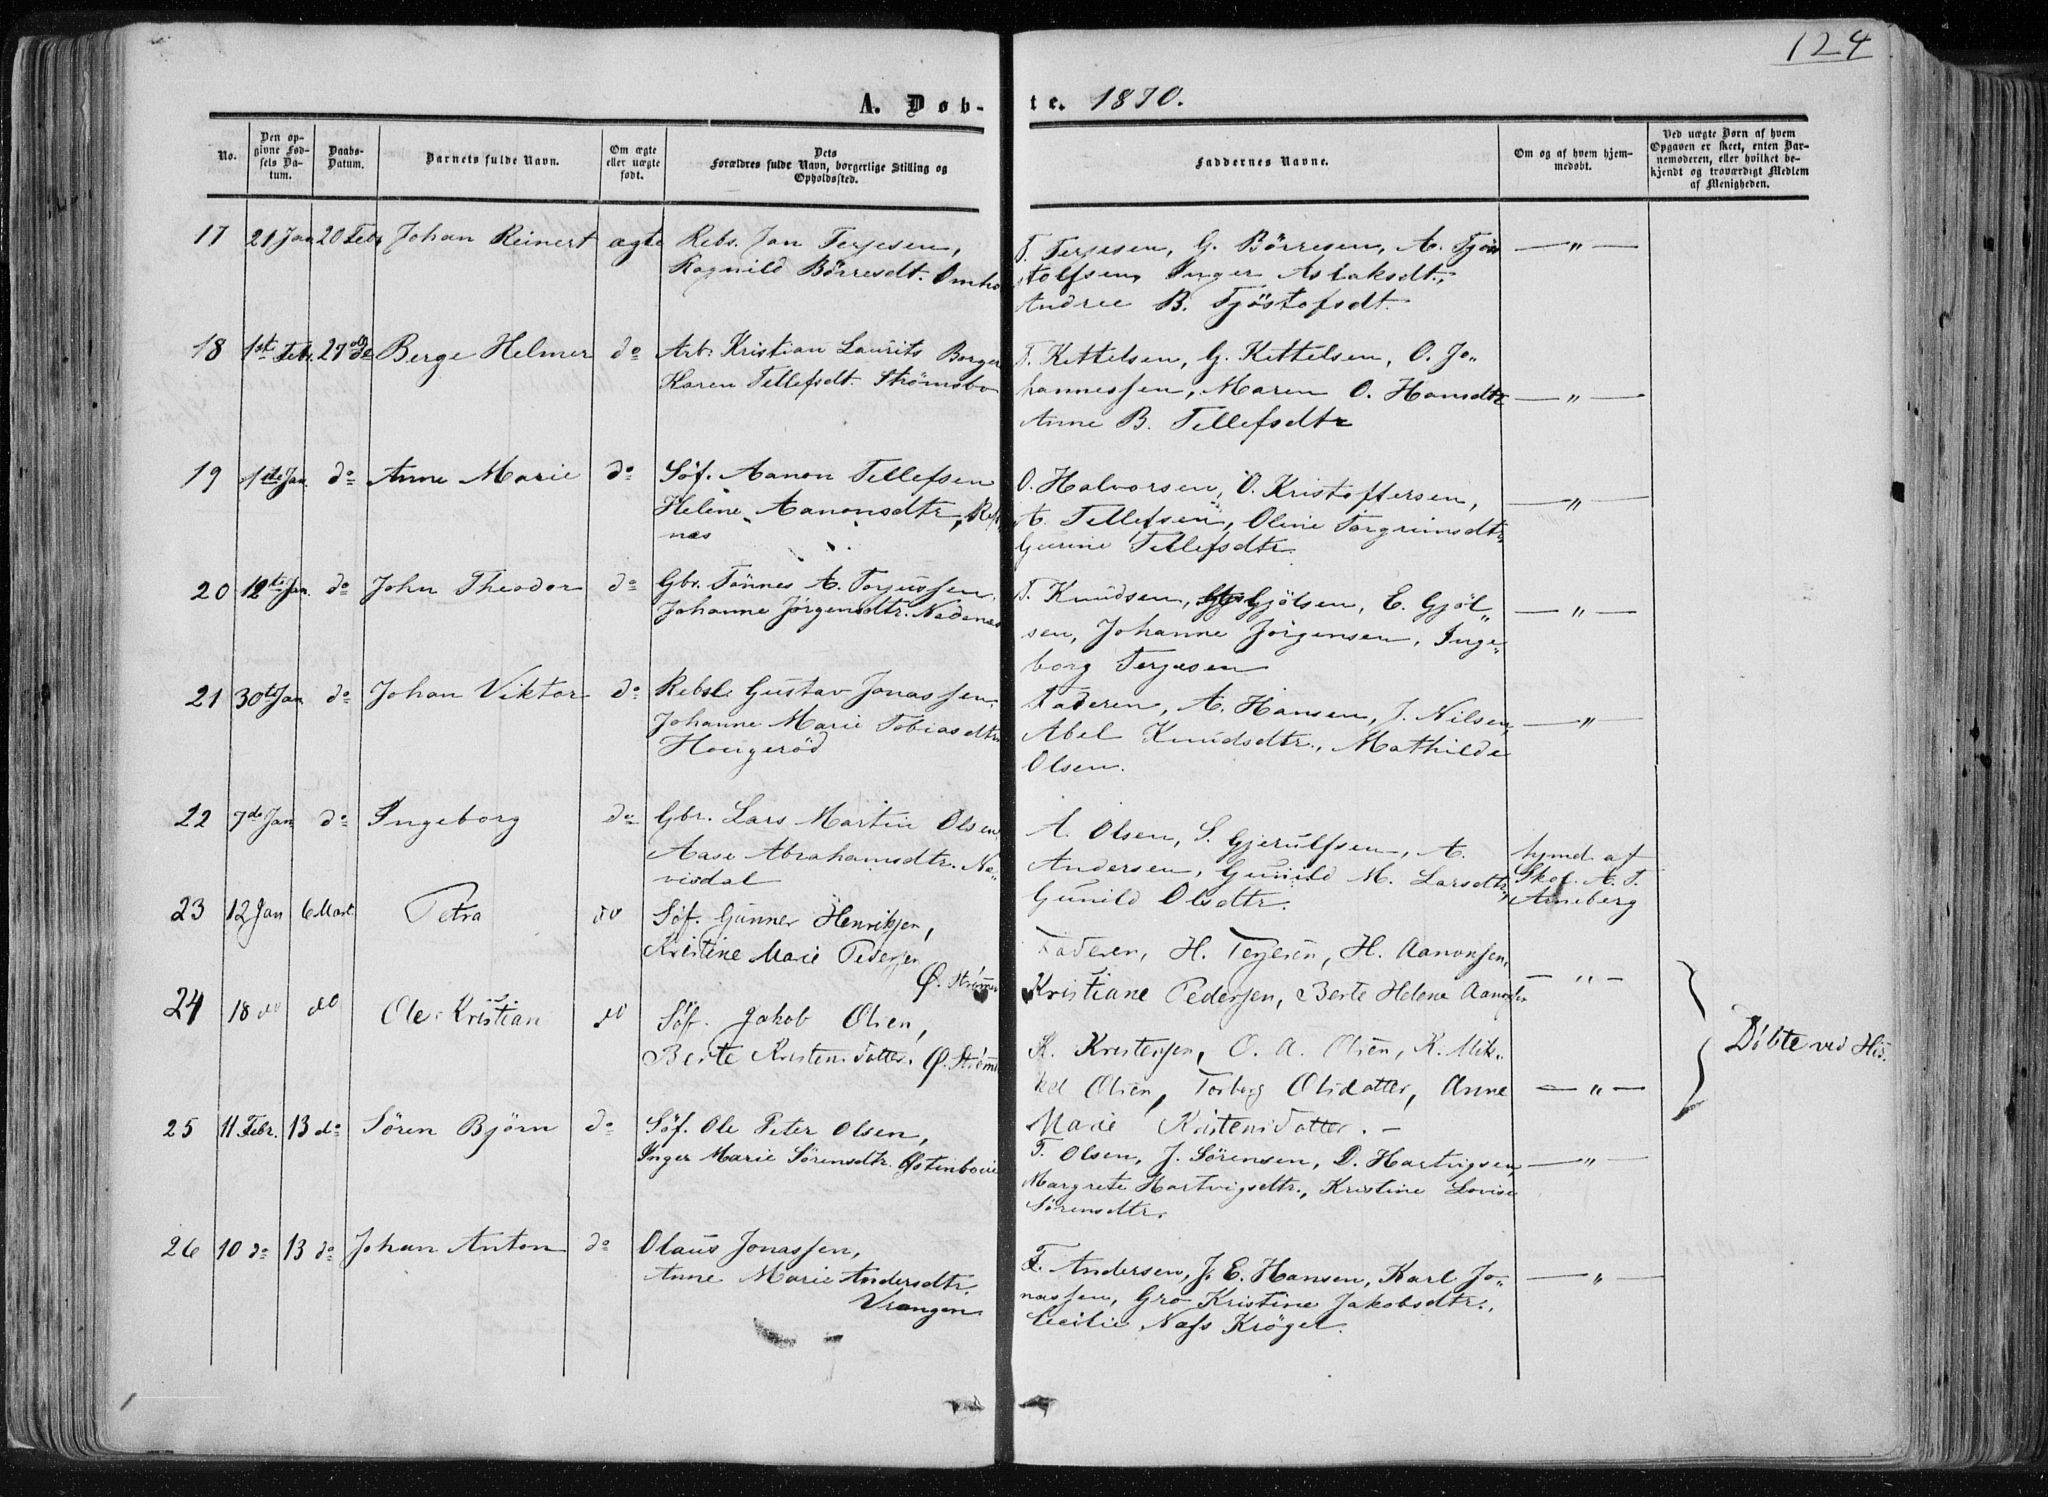 124
A. Døb- te. 1870.
No.
Den op-
givne Fød-
sels Da-
tum.
Daabs-
Datum.
Barnets fulde Navn.
Om ægte
eller uægte
født.
Dets
Forældres fulde Navn, borgerlige Stilling og
Opholdssted.
Faddernes Navne.
Om og af hvem hjem-
medøbt.
Ved uægte Børn af hvem
Opgaven er skeet, enten Bar-
nemoderen, eller hvilket be-
kjendt og troværdigt Medlem
af Menigheden.
17 21 Jan 20 Feb. Johan Reinert ægte Rebs. Jan Terjesen,
Ragnild Börresdt. Omho
T. Terjesen, G. Börresen, A. Tjøs
tolfsen, Inger Aslaksdt.,
Andree B. Tjöstofsdt. — " —
18 1ste Feb. 27 do Berge Helmer do Arb. Kristian Laurits Borger
Karen Tellefsdt. Strømsbo
T. Kettelsen, G. Kettelsen, O. Jo-
hannessen, Maren O. Hansdtr — " —
Anne B. Tellefsdtr
19 1ste Jan. do Anne Marie do Söf. Aanon Tellefsen
Helene Aanonsdtr, Ref
næs
O. Halvorsen, O. Kristoffersen, — " —
A. Tellefsen, Oline Torgrimsdtr,
Gurine Tellefsdtr.
20 12te Jan. do John Theodor do Gbr. Tönnes A. Torjussen,
Johanne Jörgensdtr. Nedenæs
T. Knudsen, Gjölsen, E. Gjöl-
sen, Johanne Jörgensen, Inge-
borg Terjesen — " —
21 30te Jan. do Johan Viktor do Rebsl. Gustav Jonassen,
Johanne Marie Tobiasdtr
Hougeröd
Faderen, A. Hansen, J. Nilsen, — " —
Abel Knudsdtr., Mathilde
Olsen.
22 7de Jan do Ingeborg do Gbr. Lars Martin Olsen
Aase Abrahamsdtr. Næ-
visdal
A. Olsen, S. Gjerulfsen, A.
Andersen, Gunild M. Larsdtr,
Gunild Olsdtr.
hjmd. af
Skol. A. T.
Arneberg
23 12 Jan 6 Mart. Petra do Søf. Gunner Henriksen,
Kristine Marie Pedersen
Ø. Strømer
Faderen, H. Terjesen, H. Aanonsen,
Kristiane Pedersen, Berte Helene Aanonsen — " —
24 18 do do Ole Kristian do Søf. Jakob Olsen,
Berte Kristensdatter. Ø. Strøm
K. Kristensen, O. A. Olsen, K. Mik-
kel Olsen, Torborg Olsdatter, Anne — " —
Marie Kristensdatter. —
Døbte ved His.
25 11 Febr. 13 do Sören Bjørn do Söf. Ole Peter Olsen,
Inger Marie Sörensdtr. Østenboeie
T. Olsen, J. Sörensen, D. Hartvigsen, — " —
Margrete Hartvigsdtr., Kristine Lovise
Sörensdtr.
26 10 do 13 do Johan Anton do Olaus Jonassen,
Anne Marie Andersdtr.
Vrangen
T. Andersen, J. E. Hansen, Karl Jo- — " —
nassen, Gro Kristine Jakobsdtr.,
Cecilie Næss Kröger.